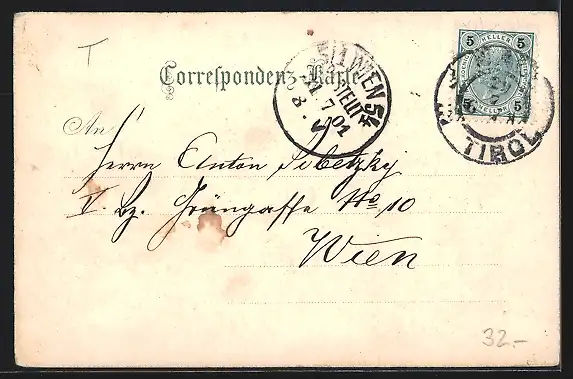 T
Correspondenz-Karte
5/1 WIEN 54
BESTELLT
7 01
8.V
5 HELLER 5
5 HELLER 5
TIROL
An
Herrn Anton Sibetzky
V. Bz. Grüngasse No 10
Wien
32.-